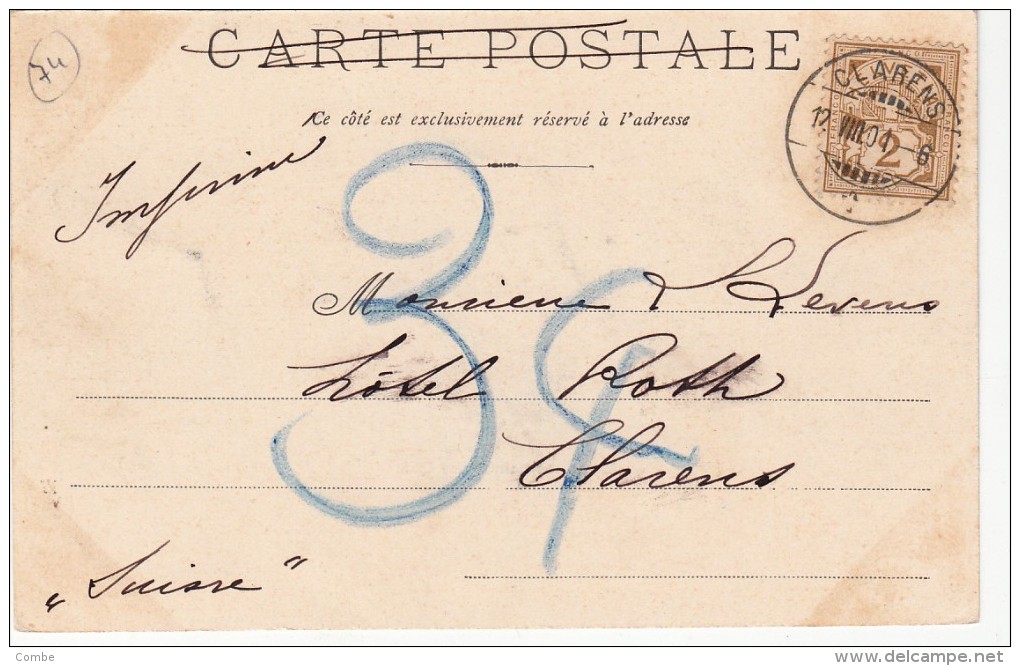 74
CARTE POSTALE
Ce côté est exclusivement réservé à l'adresse
CLARENS
12. VIII. 04 - 6
FRANCO
2
Imprimé
Monsieur
hôtel Roth
Clarens
34
„Suisse"
Combe
delcampe.net